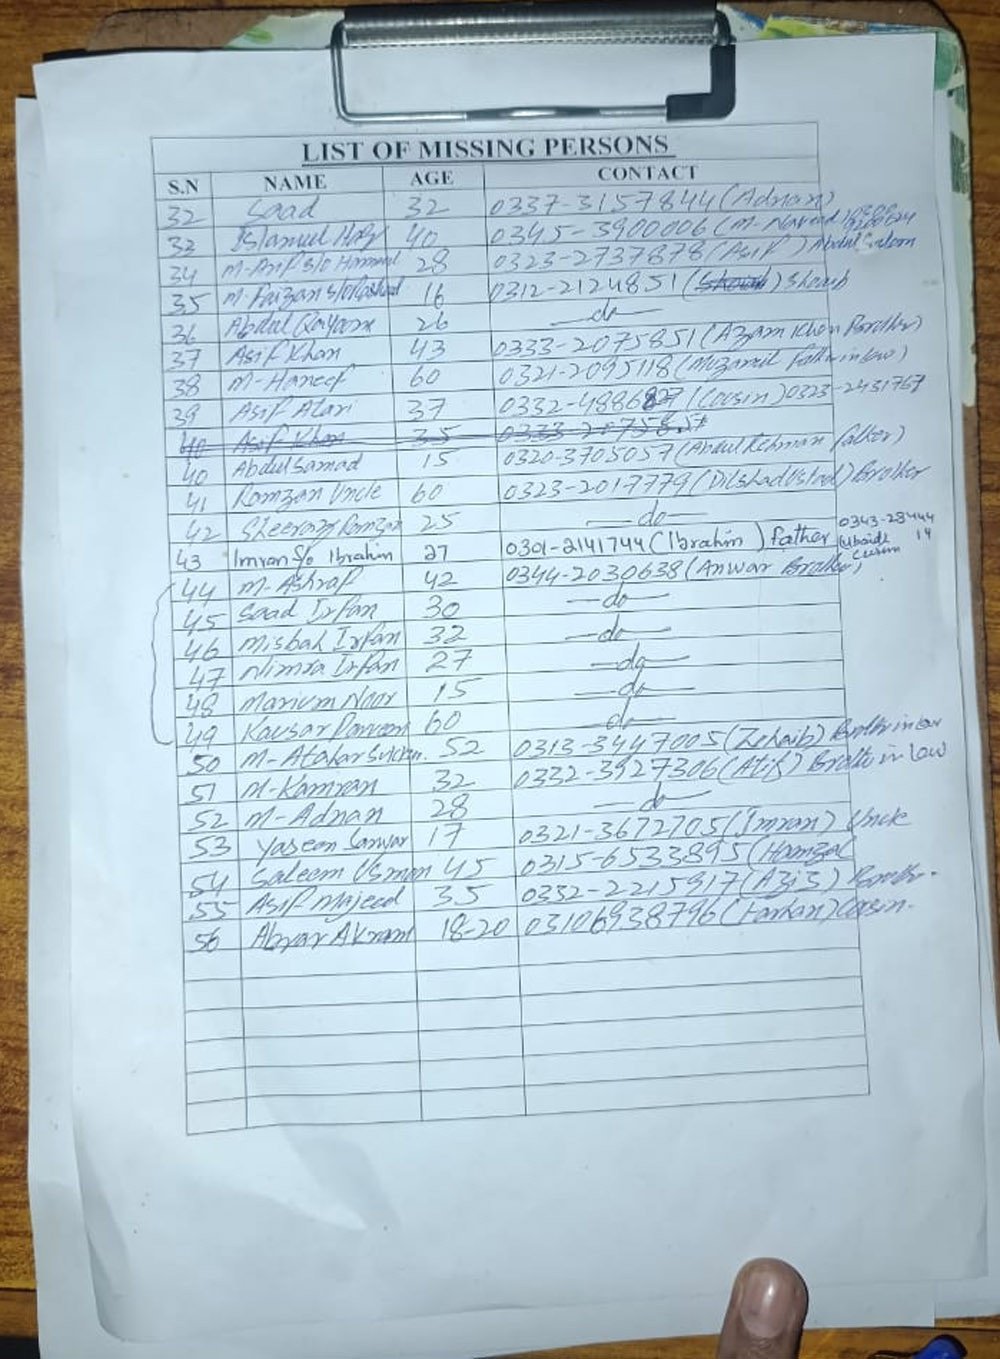 LIST OF MISSING PERSONS
S.N NAME AGE CONTACT
32 Saad 32 0337-3157844 (Adnan)
33 40 0345-3900006 (M-Naveed)
34 M-Arif S/o Hameed 28 0323-2737878 (Asif) Abdul
35 M-Faizan S/o Rashid 16 0312-2124851 Shoaib
36 Abdul Qayoom 26 —do—
37 Asif Khan 43 0333-2075851 (Azam Khan Brother)
38 M-Haneef 60 0321-2095118 (Muzamil Father in law)
39 Asif Atari 37 (Cousin) 0323-2431767
40 Asif Khan 35
40 Abdul Samad 15 0320-3705057 (Abdul Rehman father)
41 Ramzan Uncle 60 0323-2017779 (Dilshad Ustad) Brother
42 Ramzan 25 —do—
43 Imran S/o Ibrahim 27 0301-2141744 (Ibrahim) Father 0343-28444 14
44 M-Ashraf 42 0344-2030638 (Anwar Brother)
45 Saad Irfan 30 —do—
46 Misbah Irfan 32 —do—
47 Nimra Irfan 27 —do—
48 Marium Noor 15 —do—
49 Kausar Parveen 60 —do—
50 M- 52 0313-3447005 (Zohaib) Brother in law
51 M-Kamran 32 0332-3927306 (Atif) Brother in law
52 M-Adnan 28 —do—
53 Yaseen 17 0321-3672705 (Imran) Uncle
54 Saleem Usman 45 0315-6533895 (Hamza)
55 Asif Majeed 35 (Aziz)
56 Abrar Akram 18-20 03106938796 (Farhan) Cosin.